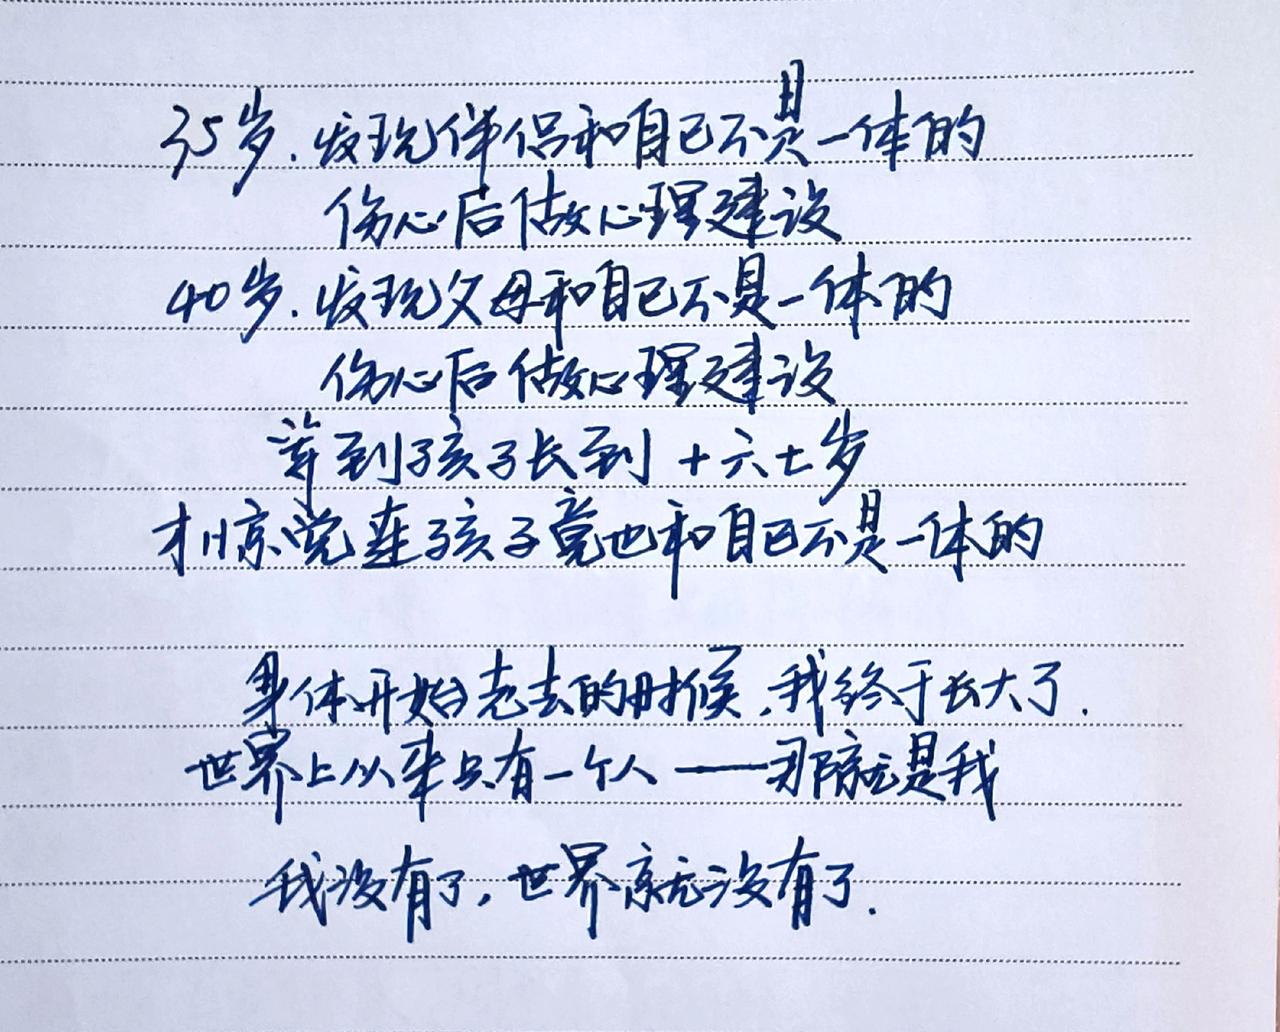 35岁.发现伴侣和自己不是一体的
伤心后做心理建设
40岁.发现父母和自己不是一体的
伤心后做心理建设
等到孩子长到十六七岁
才惊觉连孩子竟也和自己不是一体的
身体开始老去的时候,我终于长大了.
世界上从来只有一个人——那就是我
我没有了,世界就没有了.